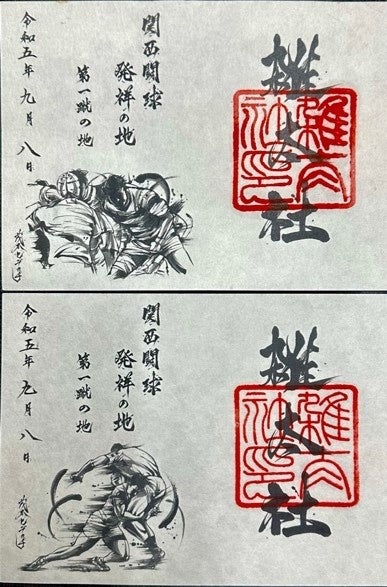 雑太社
雑太社印
関西闘球
発祥の地
第一蹴の地
令和五年九月八日
雑太社
雑太社印
関西闘球
発祥の地
第一蹴の地
令和五年九月八日